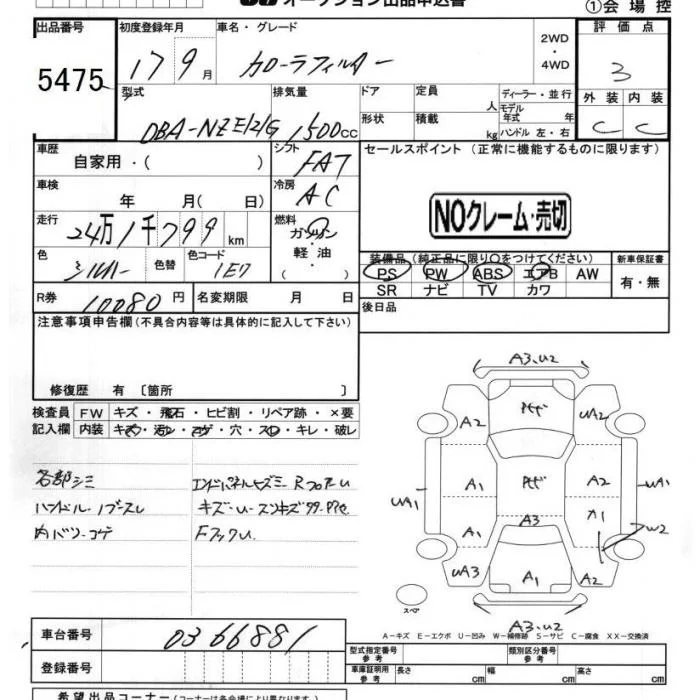 オークション出品申込書
①会場控
出品番号
5475
初度登録年月
17 9月
車名・グレード
カローラフィルダー
2WD
・
4WD
評価点
3
外装 内装
C C
型式
DBA-NZE121G
排気量
1500cc
ドア
形状
定員
人
積載
kg
ディーラー・並行
モデル
年式 年
ハンドル 左・右
車歴
自家用・( )
シフト
FAT
車検
年 月( 日)
冷房
AC
走行
24万1千799km
燃料
ガソリン
・
軽油
・
( )
色
シルバー
色替
色コード
1E7
R券
10080円
名変期限 月 日
セールスポイント(正常に機能するものに限ります)
NOクレーム・売切
装備品(純正品に限り○をつけてください)
PS PW ABS エアB AW
SR ナビ TV カワ
新車保証書
有・無
後日品
注意事項申告欄(不具合内容等は具体的に記入して下さい)
修復歴 有〔箇所 〕
検査員
記入欄
FW キズ・飛石・ヒビ割・リペア跡・×要
内装 キズ・汚レ・コゲ・穴・スレ・キレ・破レ
各部シミ
内バリコゲ
A3.U2
A2
UA2
UA1
A1
UA3
A3
A1
A2
A1
A2
W2
UA1
A3.U2
スペア
A-キズ E-エクボ U-凹み W-補修跡 S-サビ C-腐食 XX-交換済
車台番号
0366881
登録番号
型式指定番号
参考
類別区分番号
参考
車庫証明用
参考
長さ cm 幅 cm 高さ cm
希望出品コーナー(コーナーは各会場により異なります)